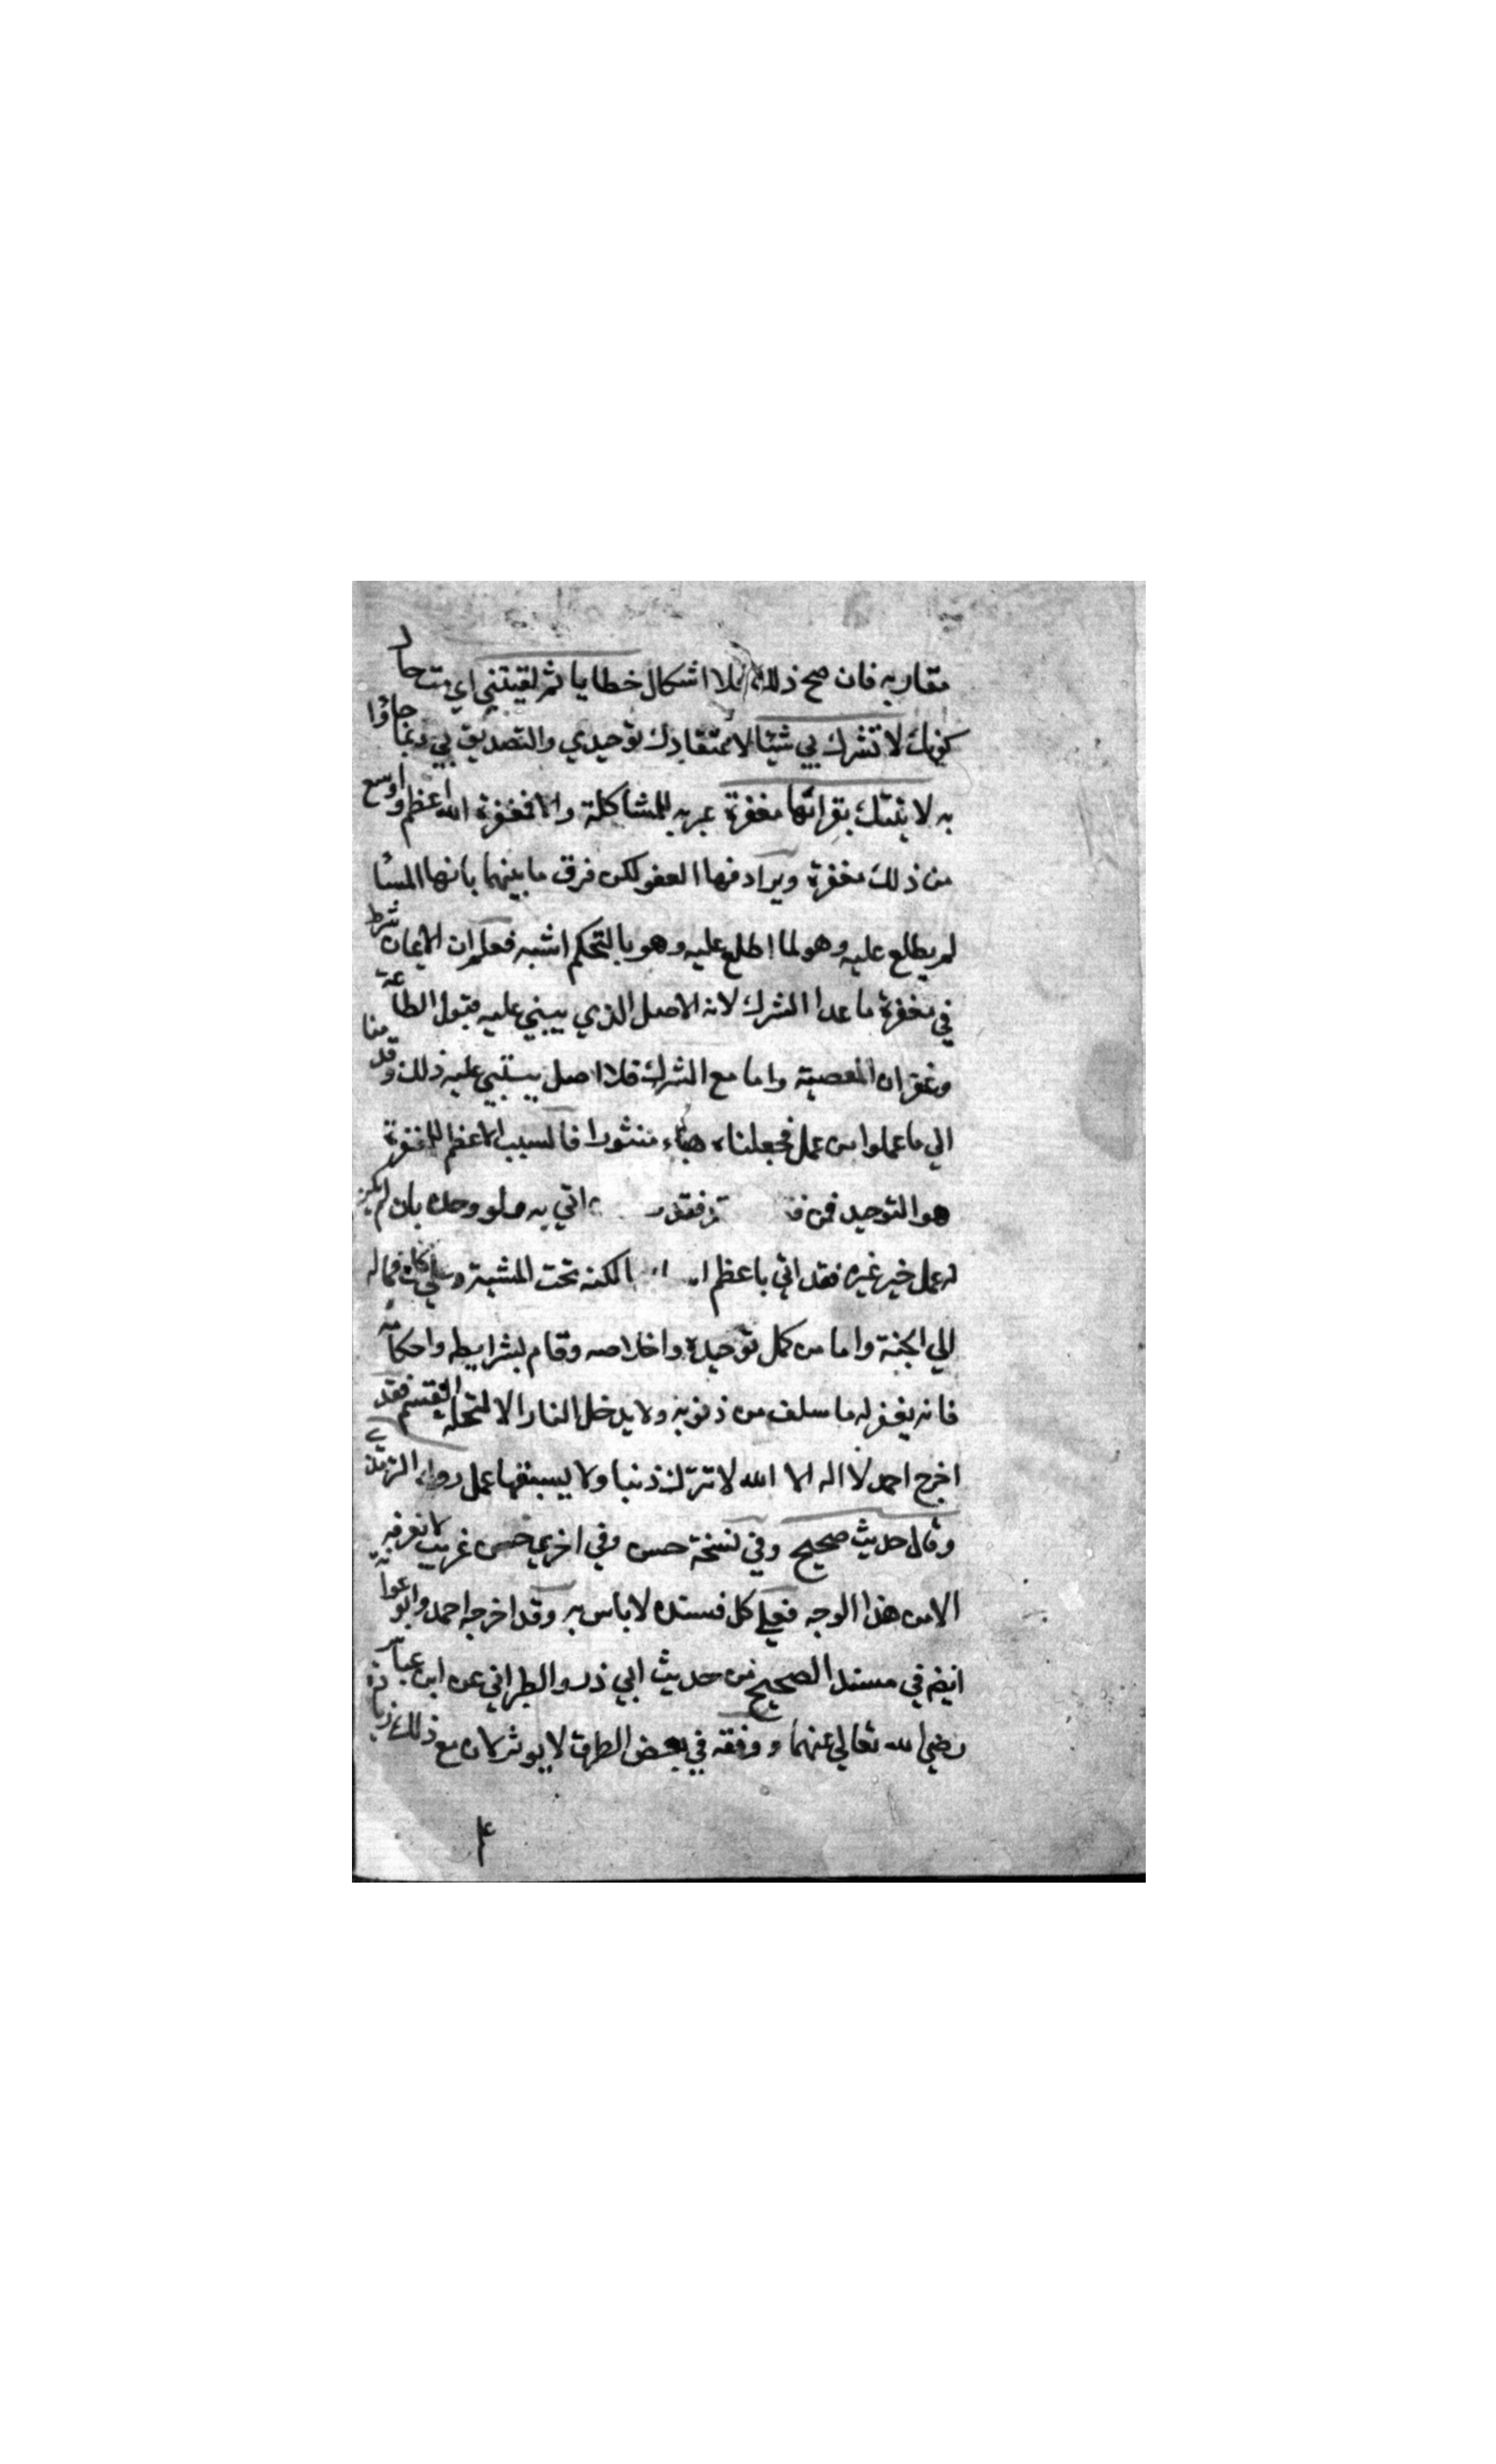 مقاربه فان صح ذلك فلا اشكال خطايا ثم لقيتني اي مت حال
كونك لا تشرك بي شيئا لاعتقادك توحيدي والتصديق بي وبما جاؤا
به لاتيتك بقرابها مغفرة عبر به للمشاكلة والا فمغفرة الله اعظم واوسع
من ذلك مغفرة ويرادفها العفو لكن فرق ما بينهما بانها المسا
لم يطلع عليه وهو لما اطلع عليه وهو بالتحكم اشبه فعلم ان الايمان شرط
في مغفرة ما عدا الشرك لانه الاصل الذي يبني عليه قبول الطاعة
وغفران المعصية واما مع الشرك فلا اصل يبتني عليه ذلك وقد منا
الي ما عملوا من عمل فجعلناه هباء منثورا فالسبب الاعظم للمغفرة
هو التوحيد فمن فقده فقد اتي به ولو وحده بان لم يكن
له عمل خير غيره فقد اتي باعظم لكنه تحت المشيئة وعلي كل فماله
الي الجنة واما من كمل توحيده واخلاصه وقام بشرايطه واحكامه
فانه يغفر له ما سلف من ذنوبه ولا يدخل النار الا لتحلة القسم فقد
اخرج احمد لا اله الا الله لا تترك ذنبا ولا يسبقها عمل رواه الترمذي
وقال حديث صحيح وفي نسخة حسن وفي اخري حسن غريب لا نعرفه
الا من هذا الوجه فعلي كل فسنده لا باس به وقد اخرجه احمد وابو عوانة
ايضا في مسنده الصحيح من حديث ابي ذر والطبراني عن ابن عباس
رضي الله تعالي عنهما ووقفه في بعض الطرق لا يوثر لان مع ذلك زيادة